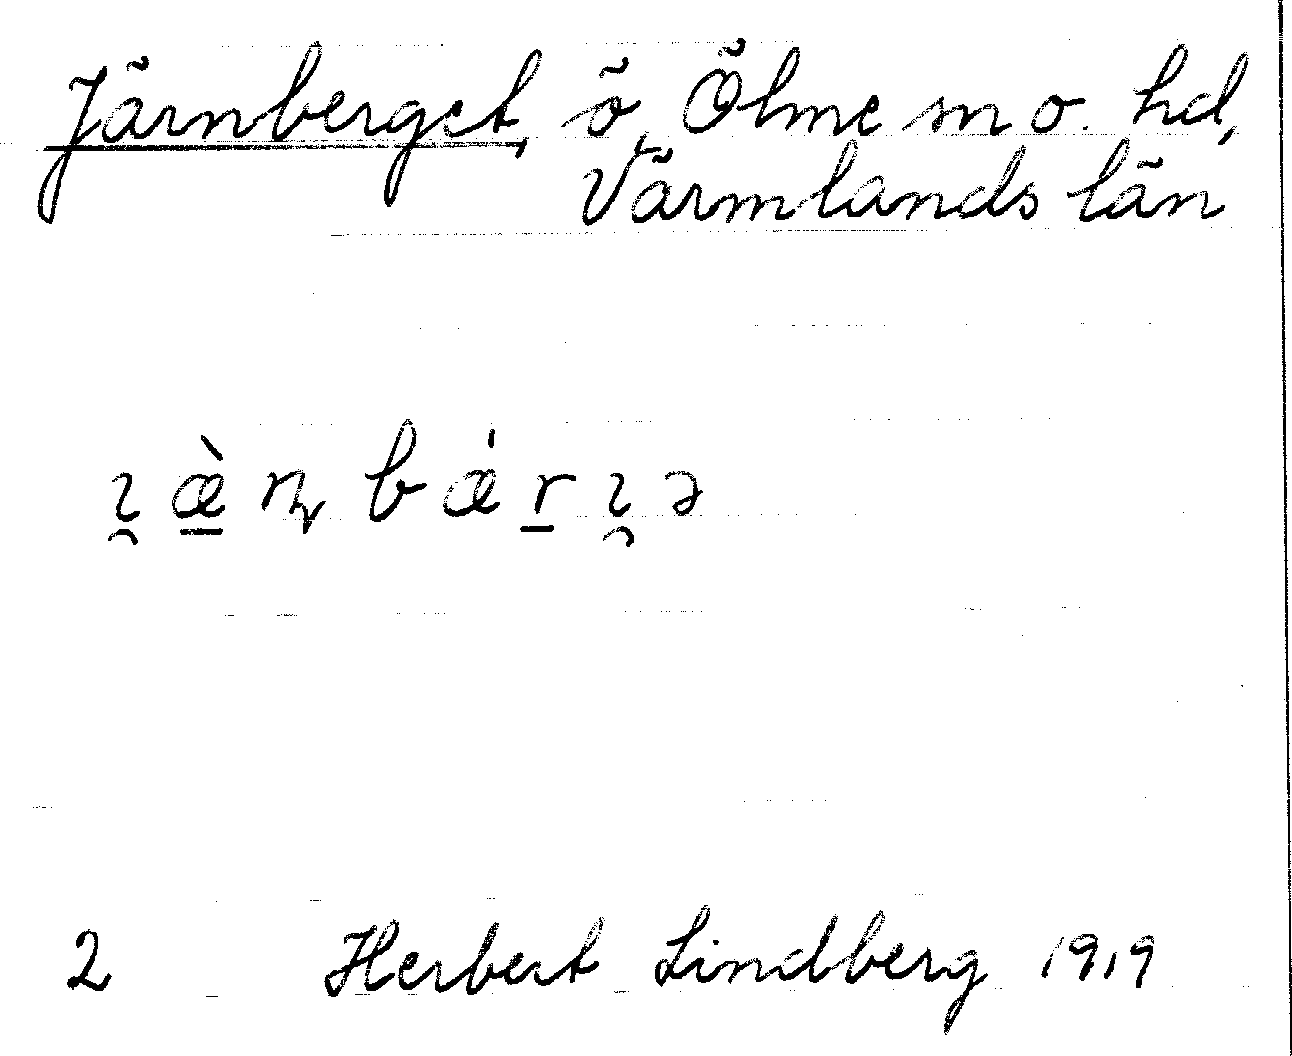 Järnberget, ö, Ölme sn o. hd,
Värmlands län
ɩ̯æ̠̀ɳbæ̍r̠ɩ̯ə
2 Herbert Lindberg 1919